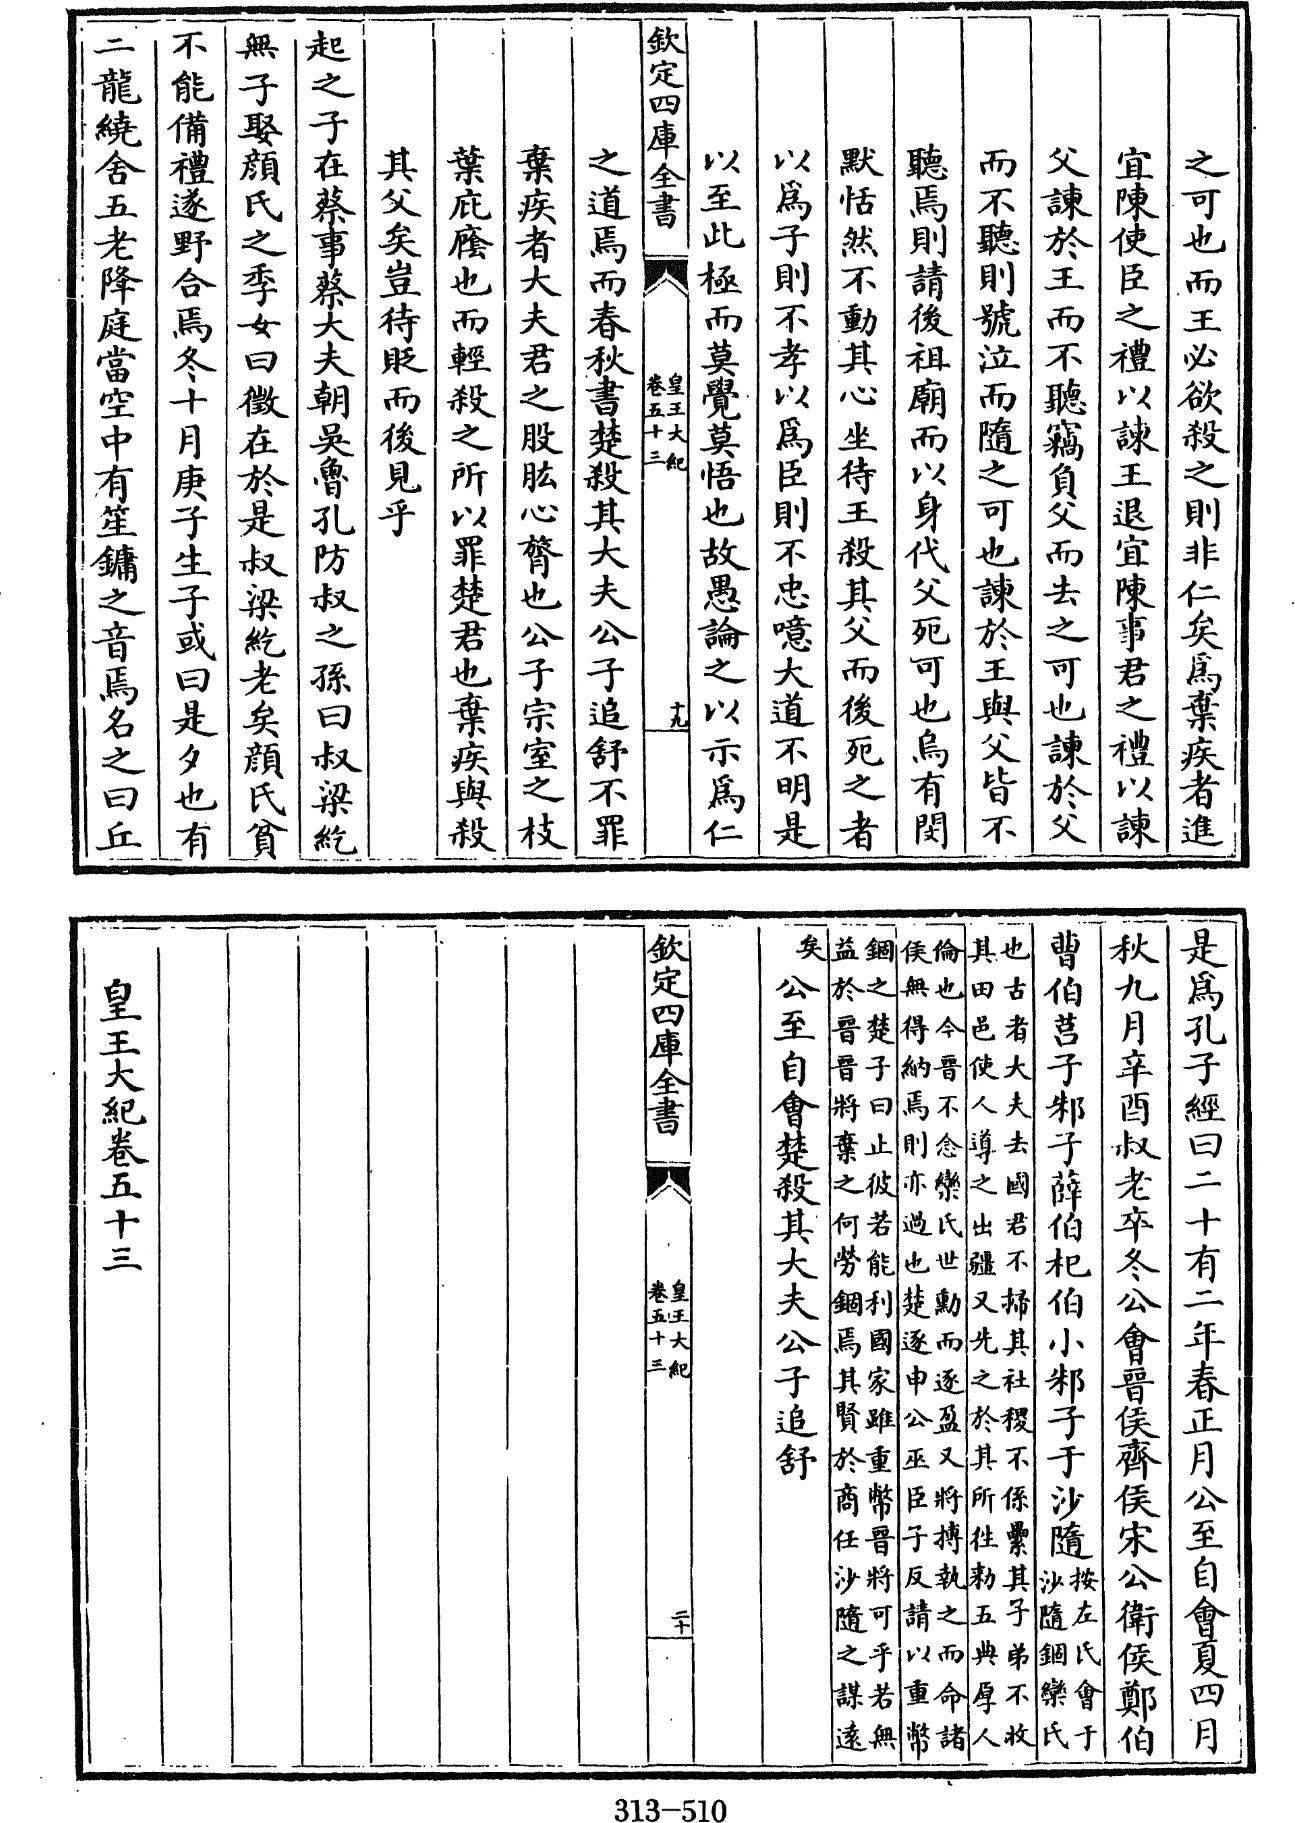 之可也而王必欲殺之則非仁矣爲棄疾者進
宜陳使臣之禮以諫王退宜陳事君之禮以諫
父諫於王而不聽竊負父而去之可也諫於父
而不聽則號泣而隨之可也諫於王與父皆不
聽焉則請後祖廟而以身代父死可也烏有閔
默恬然不動其心坐待王殺其父而後死之者
以爲子則不孝以爲臣則不忠噫大道不明是
以至此極而莫覺莫悟也故愚論之以示爲仁
欽定四庫全書
皇王大紀
卷五十三
十九
之道焉而春秋書楚殺其大夫公子追舒不罪
棄疾者大夫君之股肱心膂也公子宗室之枝
葉庇廕也而輕殺之所以罪楚君也棄疾與殺
其父矣豈待貶而後見乎
起之子在蔡事蔡大夫朝吳魯孔防叔之孫曰叔梁紇
無子娶顔氏之季女曰徵在於是叔梁紇老矣顔氏貧
不能備禮遂野合焉冬十月庚子生子或曰是夕也有
二龍繞舍五老降庭當空中有笙鏞之音焉名之曰丘
是爲孔子經曰二十有二年春正月公至自會夏四月
秋九月辛酉叔老卒冬公會晉侯齊侯宋公衛侯鄭伯
曹伯莒子邾子薛伯杞伯小邾子于沙隨
按左氏會于
沙隨錮欒氏
也古者大夫去國君不掃其社稷不係纍其子弟不收
其田邑使人導之出疆又先之於其所徃勑五典厚人
倫也今晉不念欒氏世勳而逐盈又將搏執之而命諸
侯無得納焉則亦過也楚逐申公巫臣子反請以重幣
錮之楚子曰止彼若能利國家雖重幣晉將可乎若無
益於晉晉將棄之何勞錮焉其賢於商任沙隨之謀逺
矣
公至自會楚殺其大夫公子追舒
欽定四庫全書
皇王大紀
卷五十三
二十
皇王大紀卷五十三
313-510